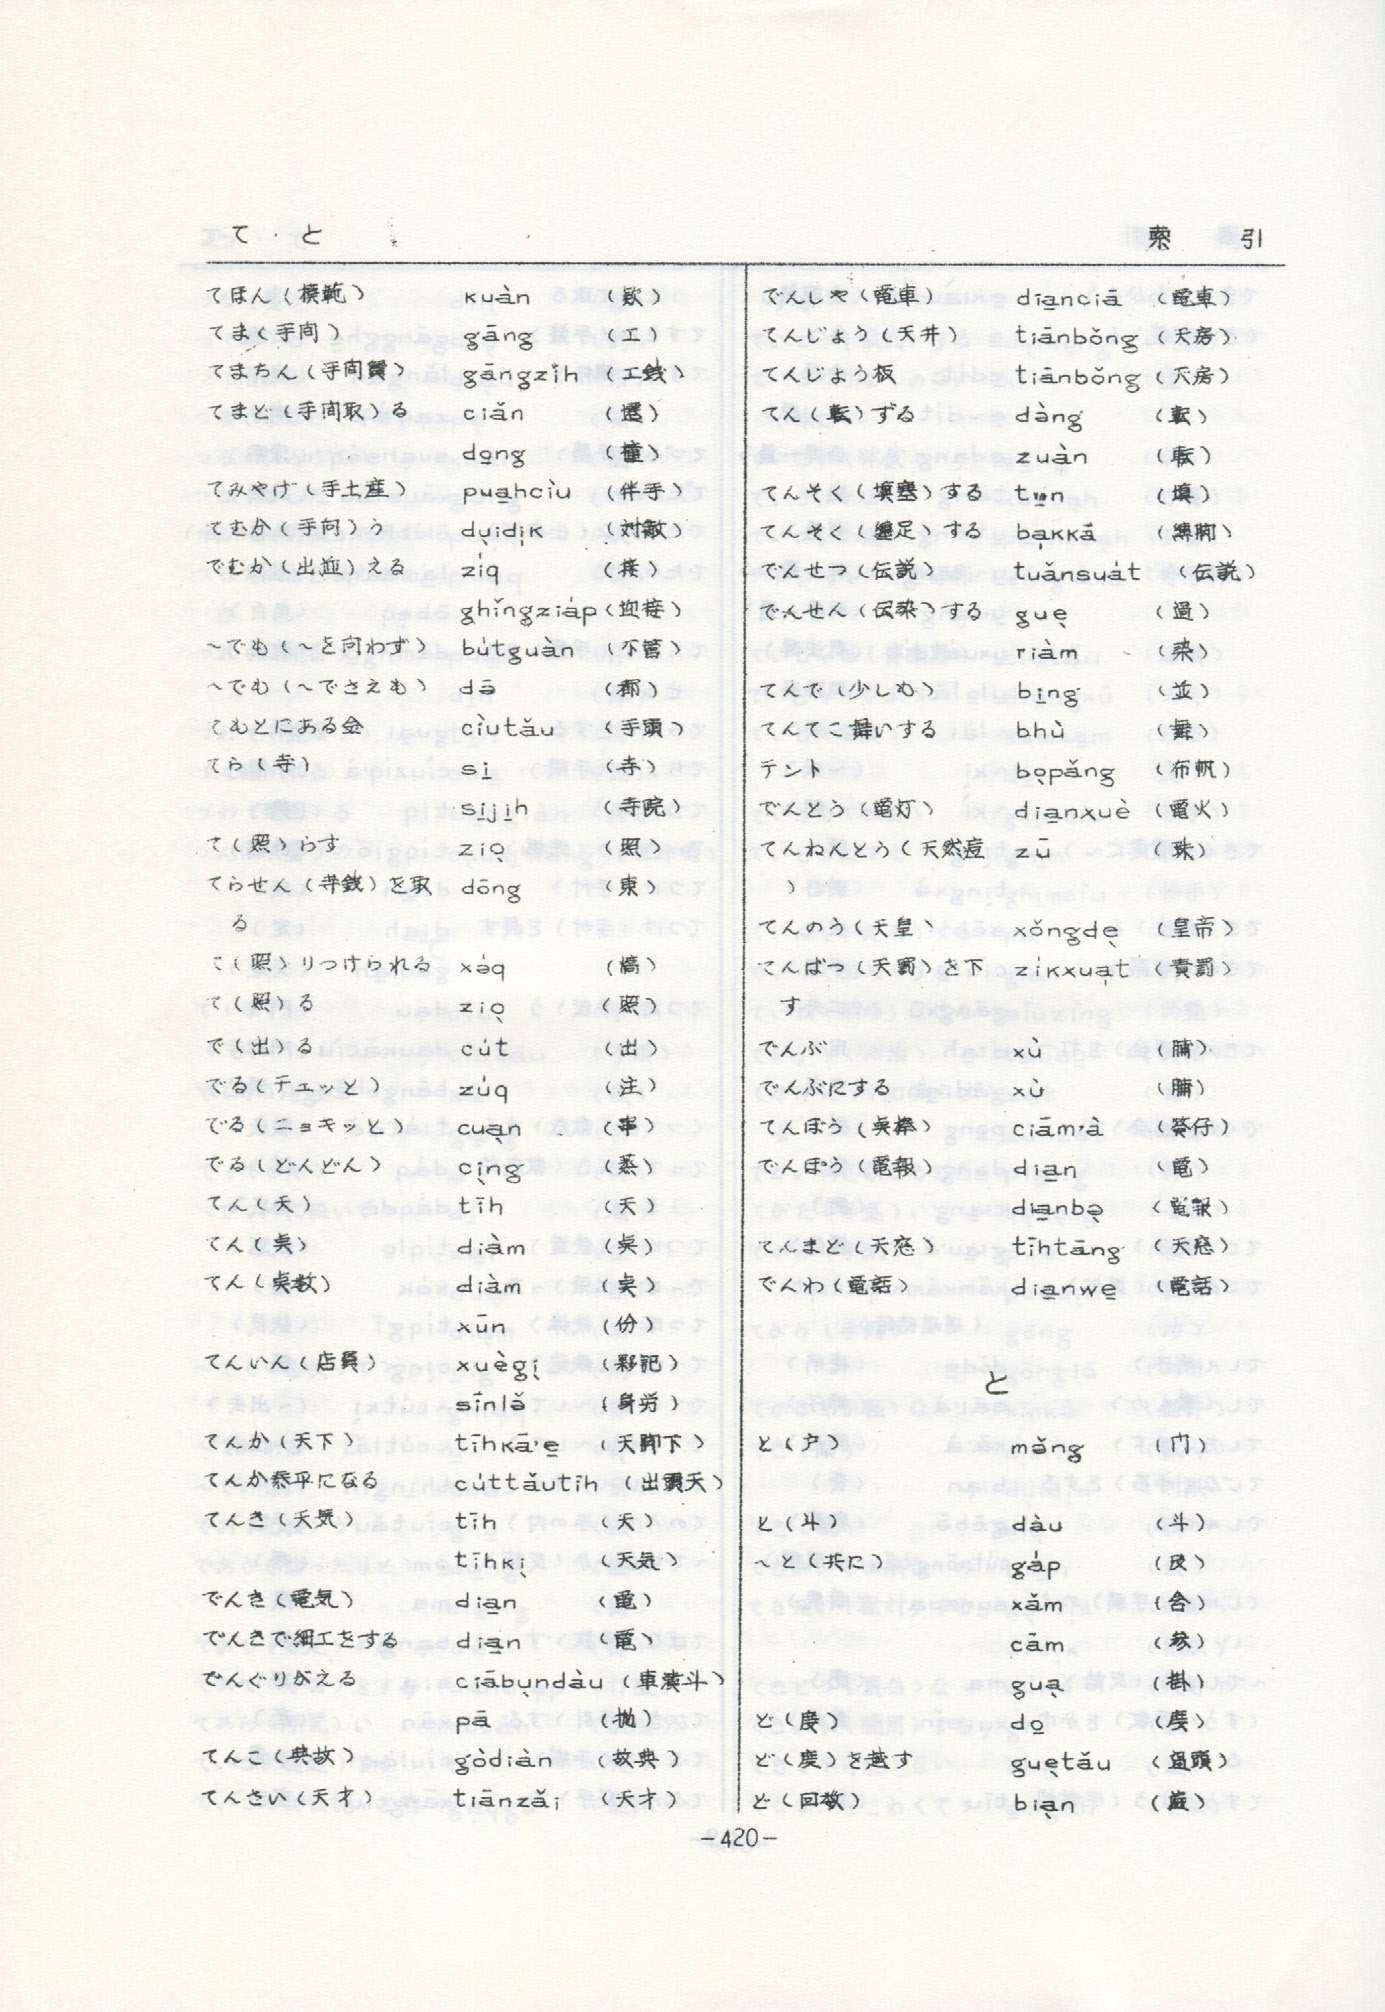 て・と
索 引
てほん（模範） kuàn （款）
てま（手间） gāng （工）
てまちん（手间賃） gāngzǐh （工銭）
てまど（手间取）る ciǎn （遷）
do̱ng （撞）
てみやげ（手土産） pua̱hcìu （伴手）
てむか（手向）う dụidịk （対敵）
でむか（出迎）える ziq （接）
ghǐngziáp （迎接）
～でも（～を问わず） bútguàn （不管）
～でも（～でさえも） dǝ̄ （都）
てもとにある金 cìutǎu （手頭）
てら（寺） si̱ （寺）
si̱ji̱h （寺院）
て（照）らす ziọ （照）
てらせん（寺銭）を取 dōng （東）
る
て（照）りつけられる xə́q （熇）
て（照）る ziọ （照）
で（出）る cút （出）
でる（チェッと） zúq （注）
でる（ニョキッと） cuạn （串）
でる（どんどん） cịng （蒸）
てん（天） tīh （天）
てん（点） diàm （点）
てん（点数） diàm （点）
xūn （份）
てんいん（店員） xuègị （夥記）
sīnlǝ̌ （身労）
てんか（天下） tīhkā'e̱ （天脚下）
てんか泰平になる cúttǎutīh （出頭天）
てんき（天気） tīh （天）
tīhkị （天気）
でんき（電気） dia̱n （電）
でんきで細工をする dia̱n （電）
でんぐりがえる ciābụndàu （車漢斗）
pā （抛）
てんこ（典故） gòdiàn （故典）
てんさい（天才） tiānzǎi （天才）
でんしゃ（電車） dia̱nciā （電車）
てんじょう（天井） tiānbǒng （天房）
てんじょう板 tiānbǒng （天房）
てん（転）ずる dàng （転）
zuàn （転）
てんそく（塡塞）する tu̱n （塡）
てんそく（纏足）する bạkkā （縛脚）
でんせつ（伝説） tuǎnsuát （伝説）
でんせん（伝染）する guẹ （過）
riàm （染）
てんで（少しも） bi̱ng （並）
てんてこ舞いする bhù （舞）
テント bọpǎng （布帆）
でんとう（電灯） dia̱nxuè （電火）
てんねんとう（天然痘 zū （珠）
）
てんのう（天皇） xǒngdẹ （皇帝）
てんばつ（天罰）を下 zíkxuạt （責罰）
す
でんぶ xù （脯）
でんぶにする xù （脯）
てんぼう（点棒） ciām'à （筶仔）
でんぽう（電報） dia̱n （電）
dia̱nbə̣ （電報）
てんまど（天窓） tīhtāng （天窓）
でんわ（電話） dia̱nwe̱ （電話）
と
と（户） mǝ̌ng （门）
と（斗） dàu （斗）
～と（共に） gáp （及）
xǎm （合）
cām （参）
guạ （掛）
ど（度） do̱ （度）
ど（度）を越す guẹtǎu （過頭）
ど（回数） biạn
－420－